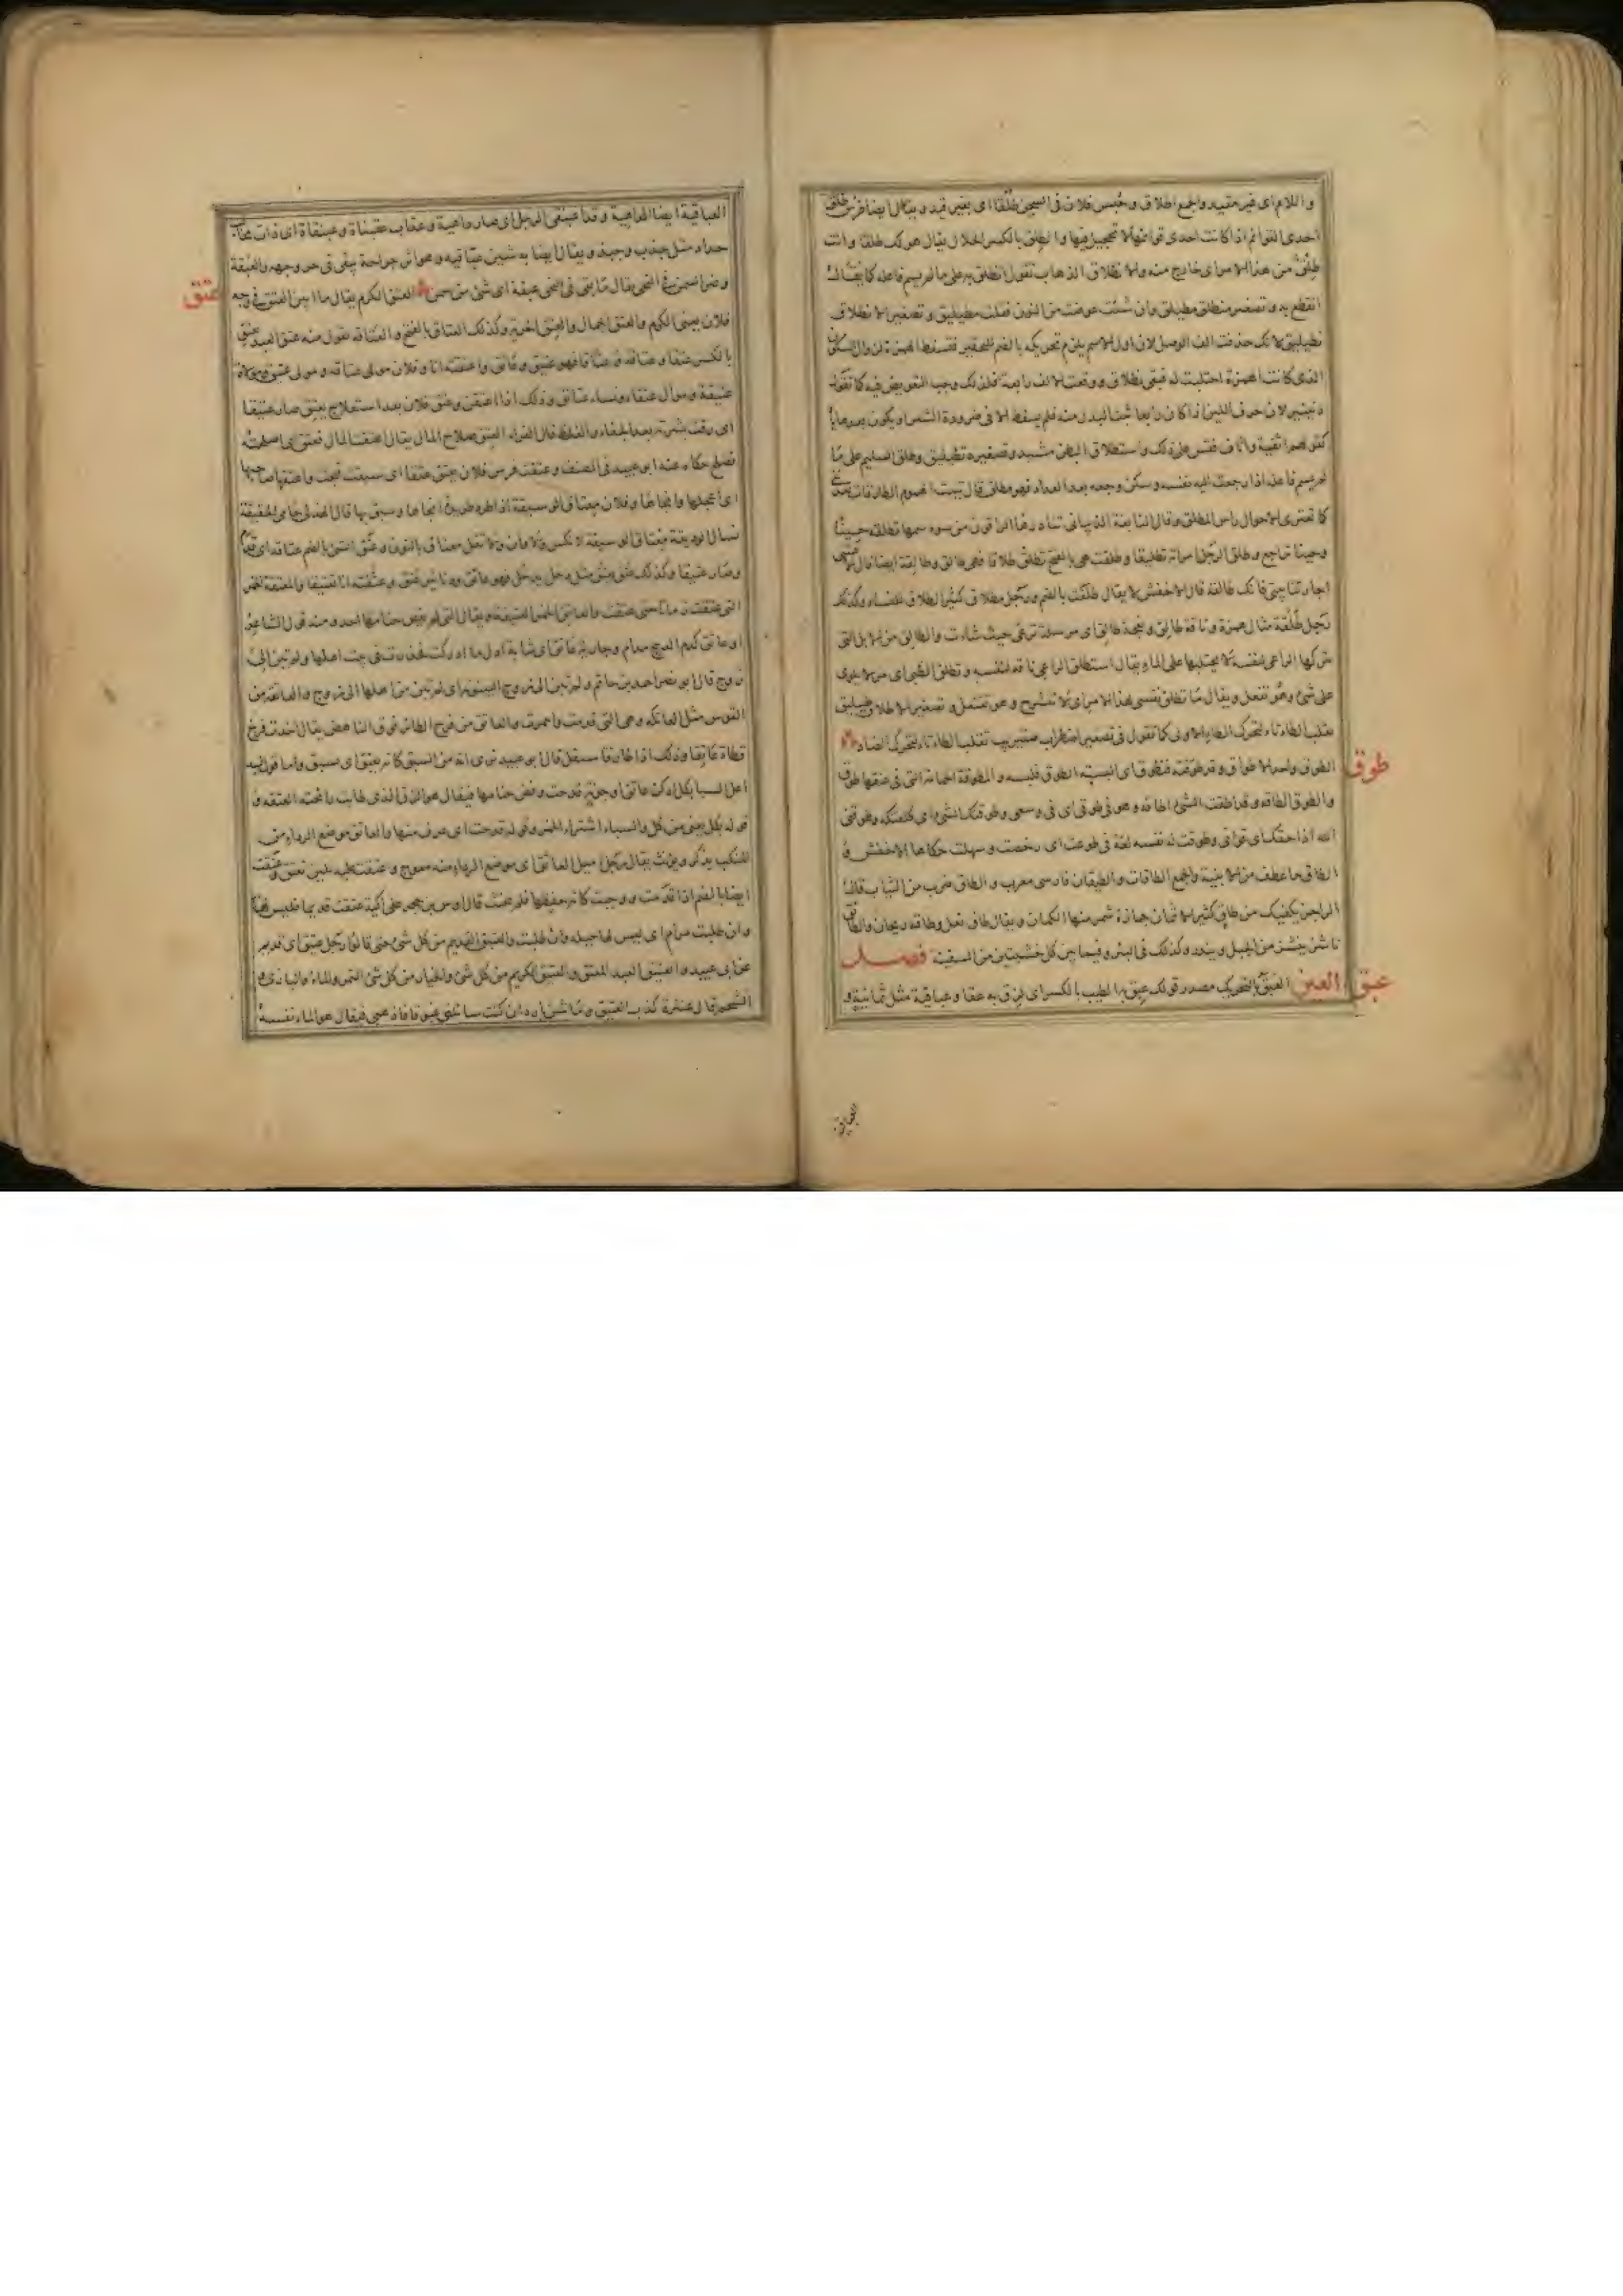 واللام اى غير مقيد والجمع اطلاق وحُبس فلان فى السجن طلقا اى بغير قيد ويقال ايضا فرس طلق
احدى القوائم اذا كانت احدى قوائمها لا تحجيل فيها والطلق بالكسر الحلال يقال هو لك طلقا وانت
طلق من هذا الامر اى خارج منه والانطلاق الذهاب تقول انطلق به على ما لم يسم فاعله كما يقال
انقطع به وتصغير منطلق مطيلق وان شئت عوضت من النون فقلت مطيليق وتصغير الانطلاق
نطيليق لانك حذفت الف الوصل لان اول الاسم يلزم تحريكه بالضم للتحقير فتسقط الهمزة لزوال السكون
الذى كانت الهمزة اجتلبت له فبقى نطلاق ووقعت الالف رابعة فلذلك وجب التعويض فيه كما تقول
دنينير لان حرف اللين اذا كان رابعا ثبت البدل منه فلم يسقط الا فى ضرورة الشعر او يكون بعده يا
كقولهم اثفية واثاف فقس على ذلك واستطلاق البطن مشيه وتصغيره تطيليق وطلق السليم على ما
لم يسم فاعله اذا رجعت اليه نفسه وسكن وجعه بعد العداد فهو مطلق قال تبيت الهموم الطارقات يعدننى
كما تعترى الاهوال راس المطلق وقال النابغة الذبيانى تناذرها الراقون من سوء سمها تطلقه حينا
وحينا تراجع وطلق الرجل امراته تطليقا وطلقت هى بالفتح تطلق طلاقا فهى طالق وطالقة ايضا قال الاعشى
اجارتنا بينى فانك طالقة قال الاخفش لا يقال طلقت بالضم ورجل مطلاق كثير الطلاق للنساء وكذلك
رجل طلقة مثال همزة وناقة طالق ونعجة طالق اى مرسلة ترعى حيث شاءت والطالق من الابل التى
يتركها الراعى لنفسه لا يحتلبها على الماء يقال استطلق الراعى ناقة لنفسه وتطلق الظبى اى مر لا يلوى
على شئ وهو تفعل ويقال ما تطلق نفسى لهذا الامر اى لا تنشرح وهو تفتعل وتصغير الاطلاق طتيليق
تقلب الطاء تاء لتحرك الطاء الاولى كما تقول فى تصغير اضطراب ضتيريب تقلب الطاء تاء لتحرك الضاد
طوق
الطوق واحد الاطواق وقد طوقته فتطوق اى البسته الطوق فلبسه والمطوقة الحمامة التى فى عنقها طوق
والطوق الطاقة وقد اطقت الشئ اطاقة وهو فى طوقى اى فى وسعى وطوقتك الشئ اى كلفتكه وطوقنى
الله اداء حقك اى قوانى وطوقت له نفسه لغة فى طوعت اى رخصت وسهلت حكاها الاخفش و
الطاق ما عطف من الابنية والجمع الطاقات والطيقان فارسى معرب والطاق ضرب من الثياب قال
الراجز يكفيك من طاق كثير الاثمان جمازة شمر منها الكمان ويقال طاق نعل وطاقة ريحان والطائق
ناشز ينشز من الجبل ويندر وكذلك فى البئر وفيما بين كل خشبتين من السفينة فصل
عبق
العين العبق بالتحريك مصدر قولك عبق به الطيب بالكسر اى لزق به عبقا وعباقية مثل ثمانية و
العباقية
العباقية ايضا الداهية وقد اعبنقى الرجل اى صار داهية وعقاب عقبناة وعبنقاة اى ذات مخالب
حداد مثل جذب وجبذ ويقال ايضا به شين عباقية وهو اثر جراحة يبقى فى حر وجهه والعبقة
وضر السمن فى النحى يقال ما بقى فى النحى عبقة اى شئ من سمن العتق الكرم يقال ما ابين العتق فى وجه
عتق
فلان يعنى الكرم والعتق الجمال والعتق الحرية وكذلك العتاق بالفتح والعتاقة تقول منه عتق العبد يعتق
بالكسر عتقا وعتاقة وعتاقا فهو عتيق وعاتق واعتقته انا وفلان مولى عتاقة ومولى عتيق ومولاة
عتيقة وموال عتقاء ونساء عتائق وذلك اذا اعتقن وعتق فلان بعد استعلاج يعتق صار عتيقا
اى رقت بشرته بعد الجفاء والغلظ قال الفراء العتق صلاح المال يقال اعتقت المال فعتق اى اصلحته
فصلح حكاه عنه ابو عبيد فى المصنف وعتقت فرس فلان تعتق عتقا اى سبقت فنجت واعتقها صاحبها
اى اعجلها وانجاها وفلان معتاق الوسيقة اذا طرد طريدة انجاها وسبق بها قال الهذلى حامى الحقيقة
نسال الوديقة معتاق الوسيقة لا نكس ولا وان ولا تقل معناق بالنون وعتق الشئ بالضم عتاقة اى قدم
وصار عتيقا وكذلك عتق يعتق مثل دخل يدخل فهو عاتق ودنانير عتق وعتقته انا تعتيقا والمعتقة الخمر
التى عتقت زمانا حتى عتقت والعاتق الخمر العتيقة ويقال التى لم يفض ختامها احد ومنه قول الشاعر
او عاتق كدم الذبيح مدام وجارية عاتق اى شابة اول ما ادركت فخدرت فى بيت اهلها ولم تبن الى
زوج قال ابو نصر احمد بن حاتم ولم تبن الى زوج البينونة اى لم تبن من اهلها الى زوج والعاتقة من
القوس مثل العاتكة وهى التى قدمت واحمرت والعاتق من فرخ الطائر فوق الناهض يقال اخذت فرخ
قطاة عاتقا وذلك اذا طار فاستقل قال ابو عبيد نرى انه من السبق كانه يعتق اى يسبق واما قول لبيد
اغلى السبا بكل ادكن عاتق او جونة قدحت وفض ختامها فيقال هو الزق الذى طابت رائحته لعتقه و
قوله بكل يعنى من كل والسباء اشتراء الخمر وقوله قدحت اى غرف منها والعاتق موضع الرداء من
المنكب يذكر ويؤنث يقال رجل اميل العاتق اى موضع الرداء منه معوج وعتقت عليه يمين تعتق وعتقت
ايضا بالضم اذا قدمت ووجبت كانه حفظها فلم يحنث قال اوس بن حجر على الية عتقت قديما فليس لها
وان طلبت مرام اى ليس لها حيلة وان طلبت والعتيق القديم من كل شئ حتى قالوا رجل عتيق اى قديم
عن ابى عبيد والعتيق العبد المعتق والعتيق الكريم من كل شئ والخيار من كل شئ التمر والماء والبازى و
الشحم قال عنترة كذب العتيق وماء شن بارد ان كنت سائلتى غبوقا فاذهبى فيقال هو الماء نفسه